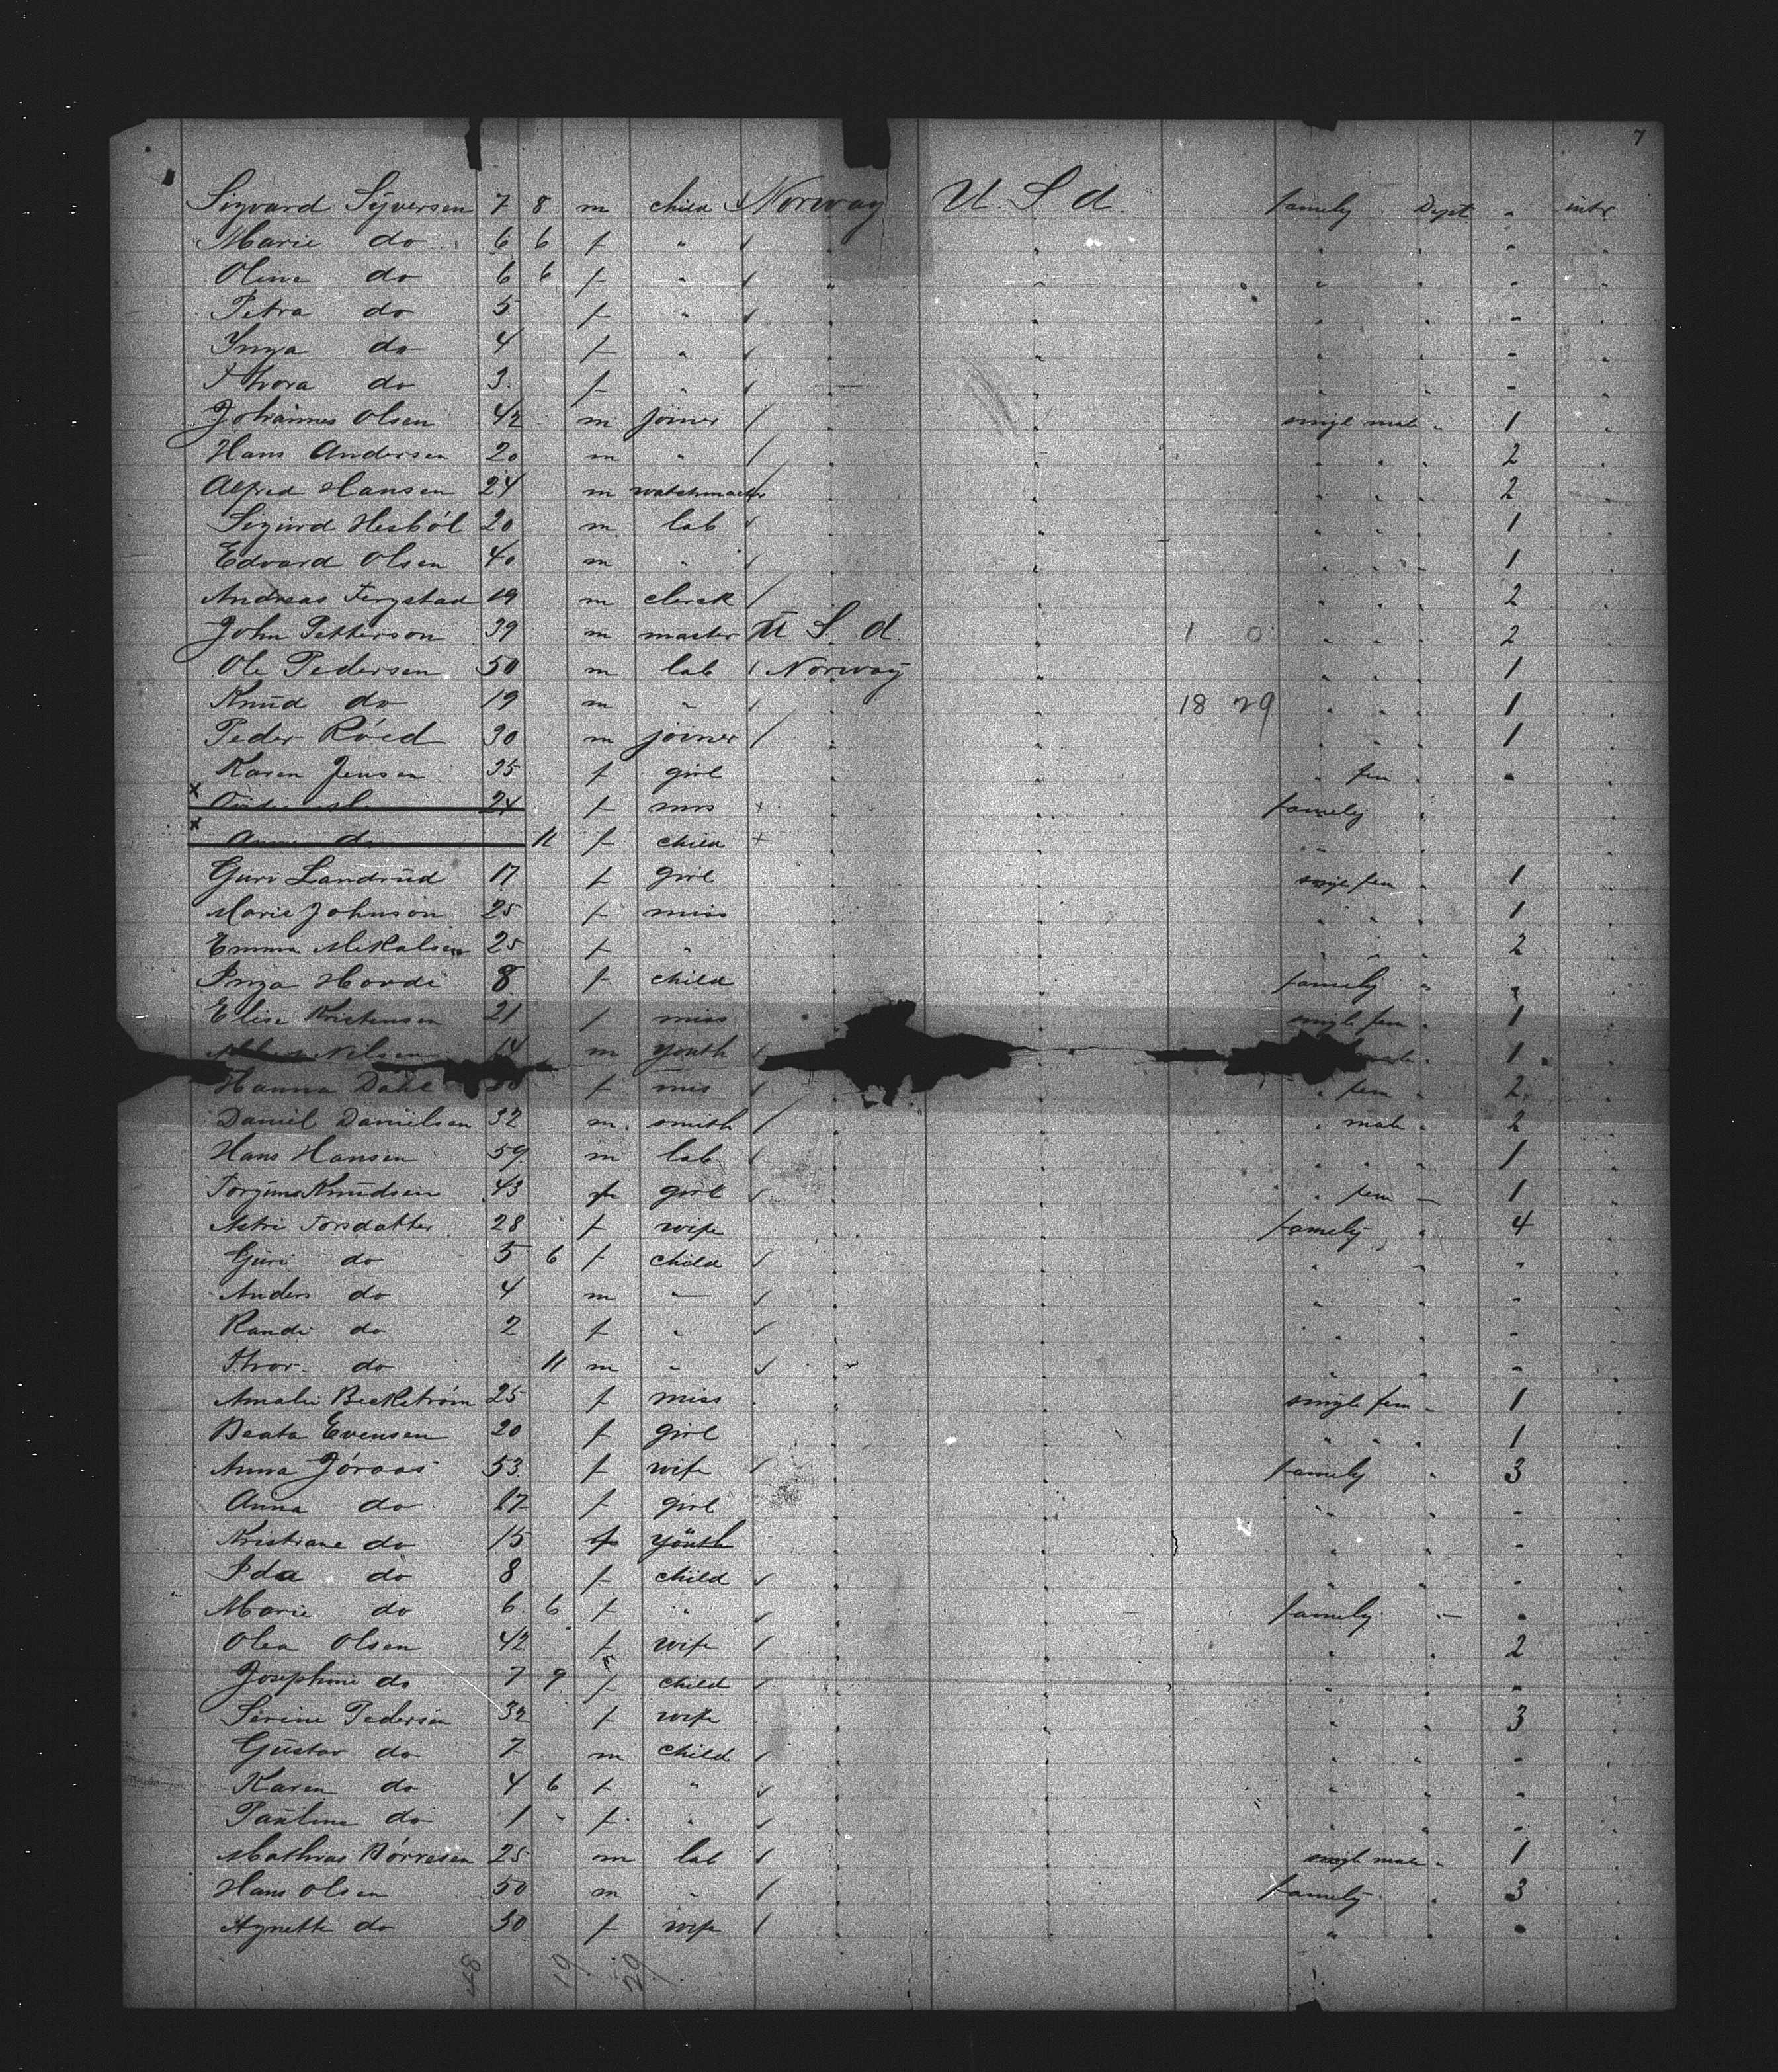 7
Sigvard Syversen 7 8 m child Norway U. S. A. family Dept " intr
Marie do 6 6 f " " " " " "
Oline do 6 6 f " " " " " "
Petra do 5 f " " " " " "
Inga do 4 f " " " " " "
Thora do 3 f " " " " " "
Johannes Olsen 42 m joiner " " singl male " 1
Hans Andersen 20 m " " " " " " 2
Alfred Hansen 24 m watchmacker " " " " " 2
Sigurd Hesböl 20 m lab " " " " " 1
Edvard Olsen 40 m " " " " " " 1
Andreas Tergstad 19 m clerck " " " " " 2
John Petterson 39 m master U S A. " 1 0 " " " 2
Ole Pedersen 50 m lab Norway " " " " 1
Knud do 19 m " " " 18 29 " " " 1
Peder Röed 30 m joiner " " " " " 1
Karen Jensen 35 f girl " " " fem " "
24 f mrs + " " family "
Anna do 11 f child + " " " "
Guri Landrud 17 f girl " " singl fem " 1
Marie Johnson 25 f miss " " " " " 1
Emma Mikalsen 25 f " " " " " " 2
Inga Hovde 8 f child " " family " "
Elise Kristensen 21 f miss single fem " 1
Nilsen 14 m youth male " 1
Hanna Dahl f mis " " " fem " 2
Daniel Danielsen 32 m smith " " " male " 2
Hans Hansen 59 m lab " " " " " 1
Knudsen 43 f girl " " " fem " 1
Astri Torsdatter 28 f wife " " family " 4
Guri do 5 6 f child " " " " "
Anders do 4 m " " " " " "
Randi do 2 f " " " " " "
Thor do 11 m " " " " " "
Amalie Beckström 25 f miss " " single fem " 1
Beata Evensen 20 f girl " " " " " 1
Anna Jöraas 53 f wife " " family " 3
Anna do 17 f girl " " " " "
Kristiane do 15 f youth " " " " "
Ida do 8 f child " " " " "
Marie do 6 6 f " " " family " "
Olea Olsen 42 f wife " " " " 2
Josephine do 7 9 f child " " " " "
Serine Pedersen 32 f wife " " " " 3
Gustav do 7 m child " " " " "
Karen do 4 6 f " " " " " "
Pauline do 1 " f " " " " " "
Mathias Börresen 25 m lab " " singl male " 1
Hans Olsen 50 m " " " family " 3
Agnette do 50 f wife " " " " "
19 29